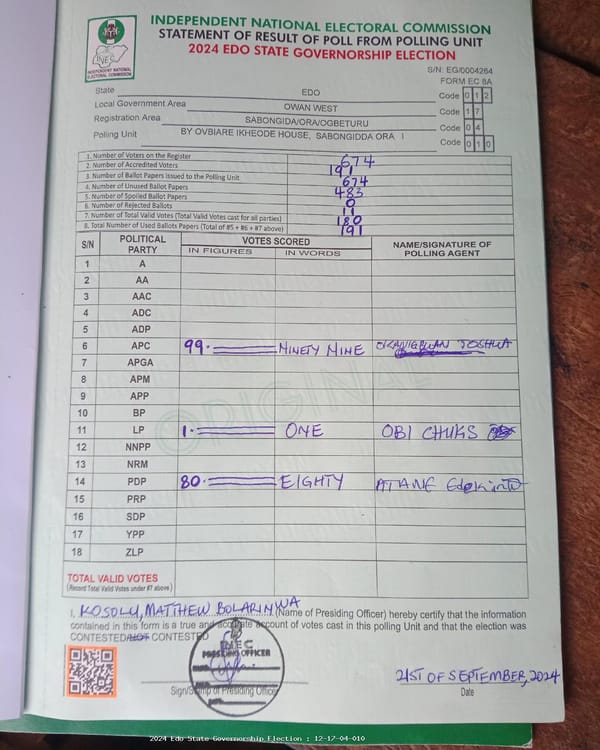 INDEPENDENT NATIONAL ELECTORAL COMMISSION
STATEMENT OF RESULT OF POLL FROM POLLING UNIT
2024 EDO STATE GOVERNORSHIP ELECTION
INEC
INDEPENDENT NATIONAL ELECTORAL COMMISSION
S/N: EG/0004264
FORM EC 8A
State EDO Code 0 1 2
Local Government Area OWAN WEST Code 1 7
Registration Area SABONGIDA/ORA/OGBETURU Code 0 4
Polling Unit BY OVBIARE IKHEODE HOUSE, SABONGIDDA ORA I Code 0 1 0
1. Number of Voters on the Register 674
2. Number of Accredited Voters 191
3. Number of Ballot Papers Issued to the Polling Unit 674
4. Number of Unused Ballot Papers 483
5. Number of Spoiled Ballot Papers 0
6. Number of Rejected Ballots 11
7. Number of Total Valid Votes (Total Valid Votes cast for all parties) 180
8. Total Number of Used Ballots Papers (Total of #5 + #6 + #7 above) 191
S/N POLITICAL PARTY VOTES SCORED NAME/SIGNATURE OF POLLING AGENT
IN FIGURES IN WORDS
1 A
2 AA
3 AAC
4 ADC
5 ADP
6 APC 99 NINETY NINE JOSHUA
7 APGA
8 APM
9 APP
10 BP
11 LP 1 ONE OBI CHUKS
12 NNPP
13 NRM
14 PDP 80 EIGHTY
15 PRP
16 SDP
17 YPP
18 ZLP
ORIGINAL
TOTAL VALID VOTES
(Record Total Valid Votes under #7 above)
I, KOSOLU, MATTHEW BOLARINWA (Name of Presiding Officer) hereby certify that the information
contained in this form is a true and accurate account of votes cast in this polling Unit and that the election was
CONTESTED/NOT CONTESTED
INEC
PRESIDING OFFICER
Sign/Stamp of Presiding Officer
21ST OF SEPTEMBER, 2024
Date
2024 Edo State Governorship Election : 12-17-04-010